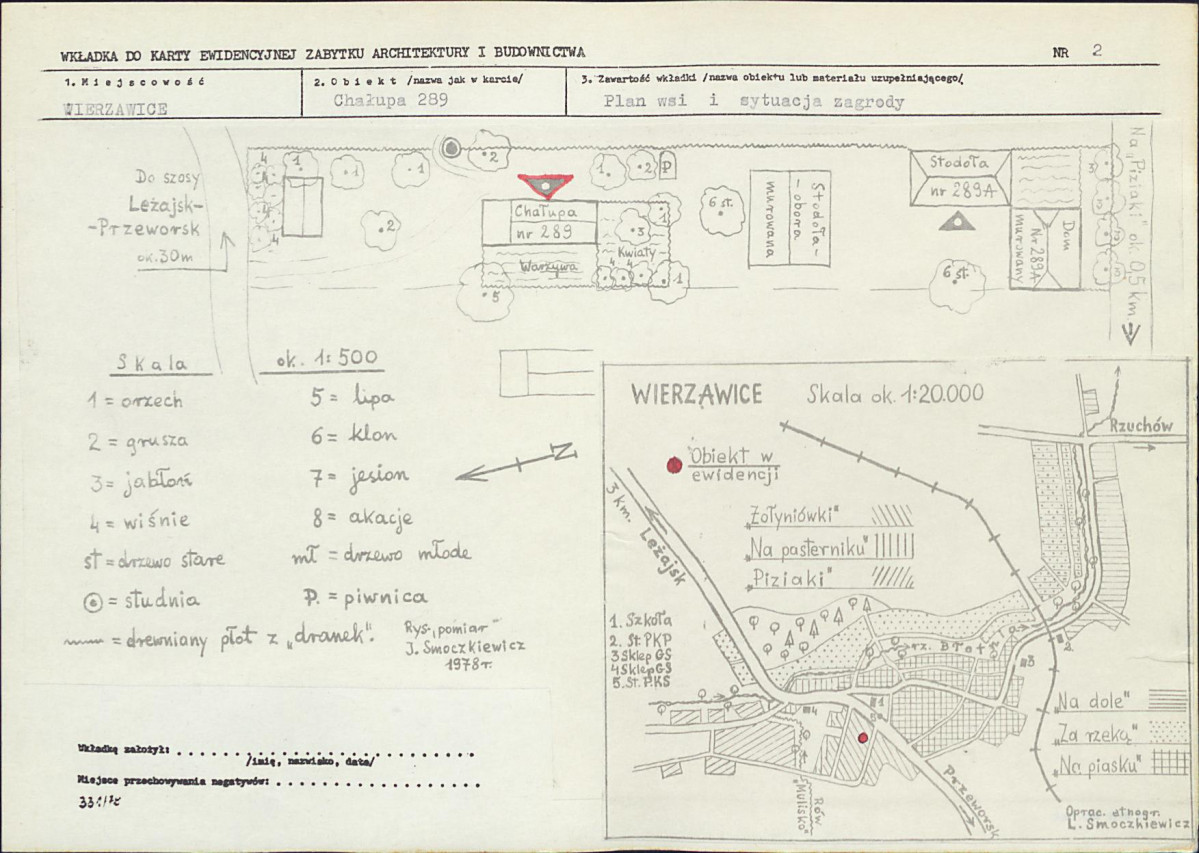 WKŁADKA DO KARTY EWIDENCYJNEJ ZABYTKU ARCHITEKTURY I BUDOWNICTWA
NR 2
1. Miejscowość
WIERZAWICE
2. Obiekt /nazwa jak w karcie/
Chałupa 289
3. Zawartość wkładki /nazwa obiektu lub materiału uzupełniającego/
Plan wsi i sytuacja zagrody
Do szosy
Leżajsk-
-Przeworsk
ok. 30m
4
1
1
1
2
2
1
2
P
Chałupa
nr 289
Warzywa
Kwiaty
1
3
4
4
1
5
6 st.
Stodoła-
-obora
murowana
Stodoła
nr 289A
Dom
Nr 289A
murowany
6 st.
3
3
3
3
Na „Piziaki" ok. 0,5 km
Skala ok. 1:500
1 = orzech
2 = grusza
3 = jabłoń
4 = wiśnie
st = drzewo stare
= studnia
= drewniany płot z „dranek".
5 = lipa
6 = klon
7 = jesion
8 = akacje
mł = drzewo młode
P. = piwnica
Rys. „pomiar"
J. Smoczkiewicz
1978 r.
N
Wkładkę założył:
/imię, nazwisko, data/
Miejsce przechowywania negatywów:
WIERZAWICE Skala ok. 1:20.000
Obiekt w
ewidencji
„Żołyniówki"
„Na pasterniku"
„Piziaki"
3 km. Leżajsk
Rzuchów
1. Szkoła
2. St. PKP
3 Sklep GS
4 Sklep GS
5. St. PKS
rz. Błotnia
1
2
3
4
5
„Na dole"
„Za rzeką"
„Na piasku"
Rów
„Mulisko"
Przeworsk
Oprac. etnogr.
L. Smoczkiewicz